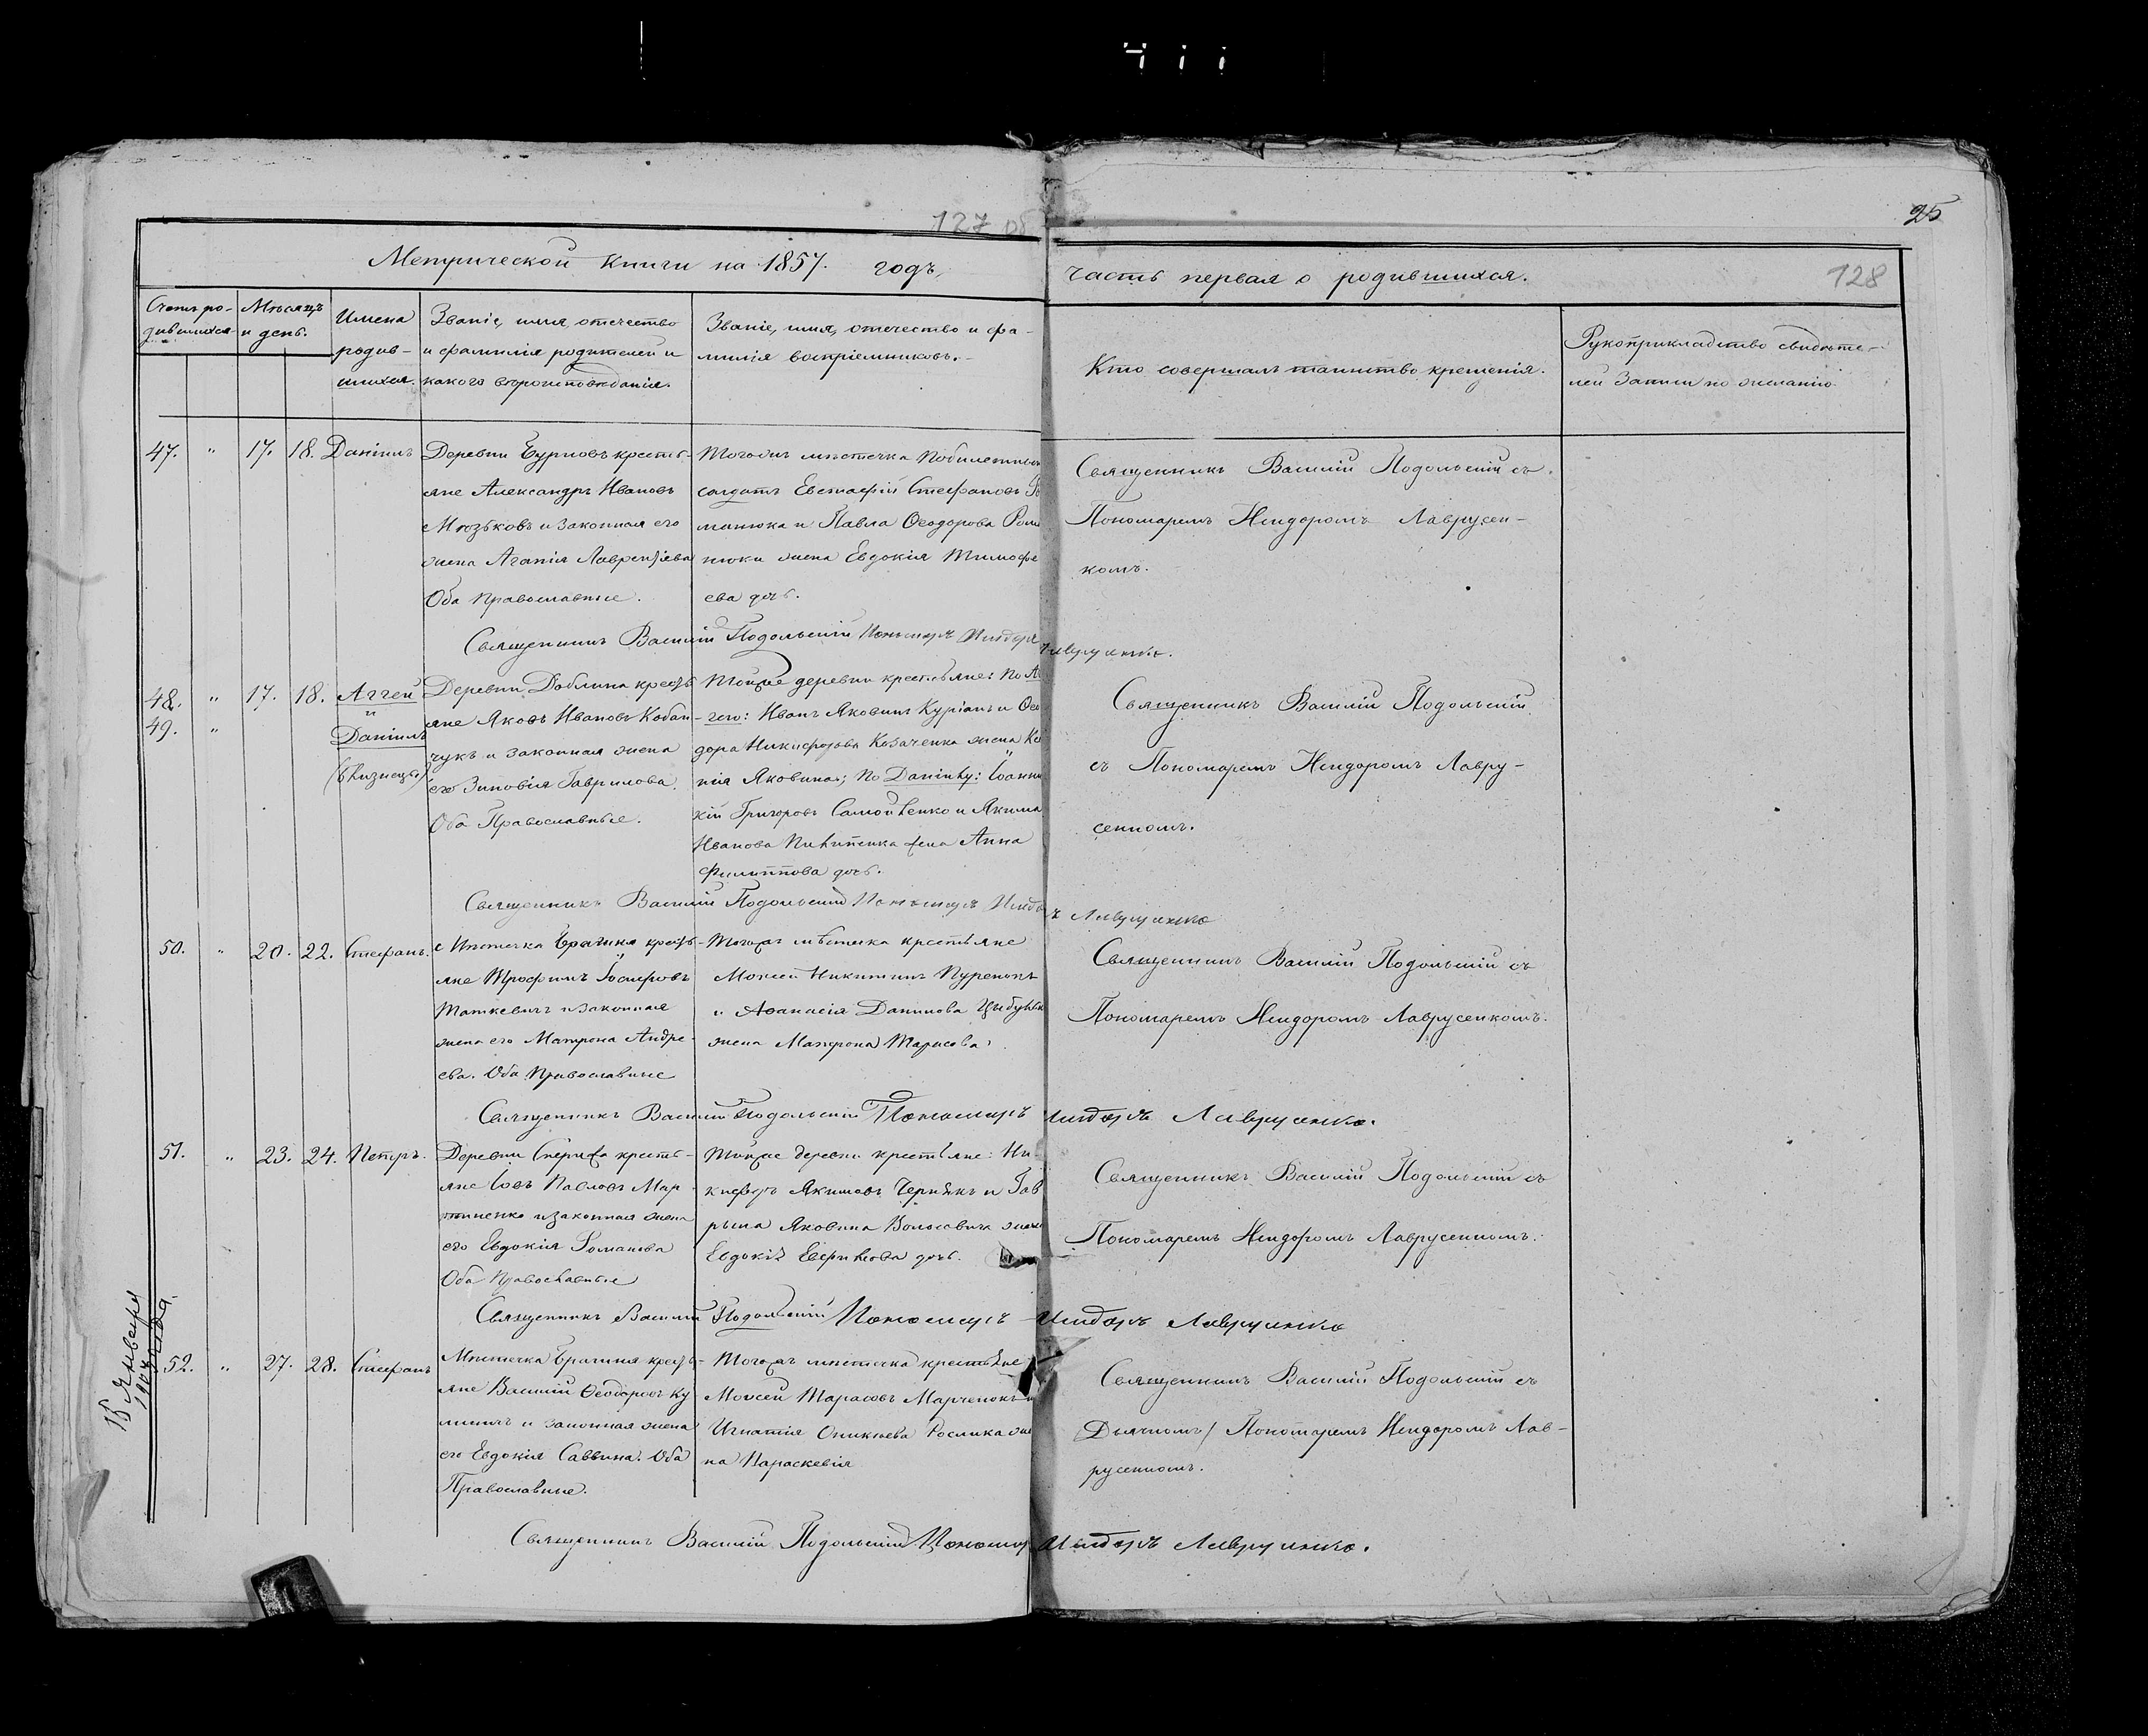 127 об
25
Метрической книги на 1857. годъ,
часть первая о родившихся.
128
Счетъ ро-
дившихся
Мѣсяцъ
и день.
Имена
родив-
шихся.
Званіе, имя, отечество
и фамилія родителей и
какого вѣроисповѣданія.
Званіе, имя, отечество и фа-
милія воспріемниковъ.
Кто совершалъ таинство крещенія.
Рукоприкладство свидѣте-
лей записи по желанію
47. " 17. 18. Даніилъ
Деревни кресть-
яне Александръ Ивановъ
и законная его
жена Агапія Лаврентіева
Оба Православные.
мѣстечка
солдатъ Евстафій Стефановъ
и Павла Ѳеодорова
жена Евдокія Тимофе
ева дочь.
Священникъ Василій Подольскій съ
Пономаремъ Исидоромъ Лаврусен-
комъ.
Священникъ Василій Подольскій Пономарь Исидоръ Лаврусенко.
48. " 17. 18. Аггей
49. "
и
Даніилъ
(близнецы)
Деревни кресть
яне Яковъ Ивановъ Кобан-
чукъ и законная жена
его Зиновія Гаврилова.
Оба Православные.
Тойже деревни крестьяне: по Аг
гего: Иванъ Яковинъ и Ѳео
дора Никифорова Козаченка жена Ке
нія Яковина; по Даніилу: Іоанни
кій Григоровъ Самойленко и Якима
Иванова жена Анна
Филиппова дочь.
Священникъ Василій Подольскій
съ Пономаремъ Исидоромъ Лавру-
сенкомъ.
Священникъ Василій Подольскій Пономарь Исидоръ Лаврусенко
50. " 20. 22. Стефанъ.
Мѣстечка Брагиня кресть-
яне Трофимъ Іосифовъ
Маткевичъ и законная
жена его Матрона Андре-
ева. Оба Православные
Тогожъ мѣстечка крестьяне
Моисей Никитинъ
и Аѳанасія Данилова
жена Матрона Тарасова.
Священникъ Василій Подольскій съ
Пономаремъ Исидоромъ Лаврусенкомъ.
Священникъ Василій Подольскій Пономарь Исидоръ Лаврусенко.
51. " 23. 24. Петръ.
Деревни Спериже кресть-
яне Іовъ Павловъ Мар-
тиненко и законная жена
его Евдокія Романова
Оба Православные
Тойже деревни крестьяне: Ни-
кифоръ Якимовъ Чернякъ и Гав
рыла Яковина жена
Евдокія дочь.
Священникъ Василій Подольскій съ
Пономаремъ Исидоромъ Лаврусенкомъ.
Священникъ Василій Подольскій Пономарь Исидоръ Лаврусенко
15 Января
52. " 27. 28. Стефанъ
Мѣстечка Брагиня кресть-
яне Василій Ѳеодоровъ Ку
и законная жена
его Евдокія Саввина. Оба
Православные.
Тогожъ мѣстечка крестьяне
Моисей Тарасовъ Марченокъ и
Игнатія Оникіева Рослика же
на Параскевія
Священникъ Василій Подольскій съ
Дьячкомъ/ Пономаремъ Исидоромъ Лав-
русенкомъ.
Священникъ Василій Подольскій Пономарь Исидоръ Лаврусенко.